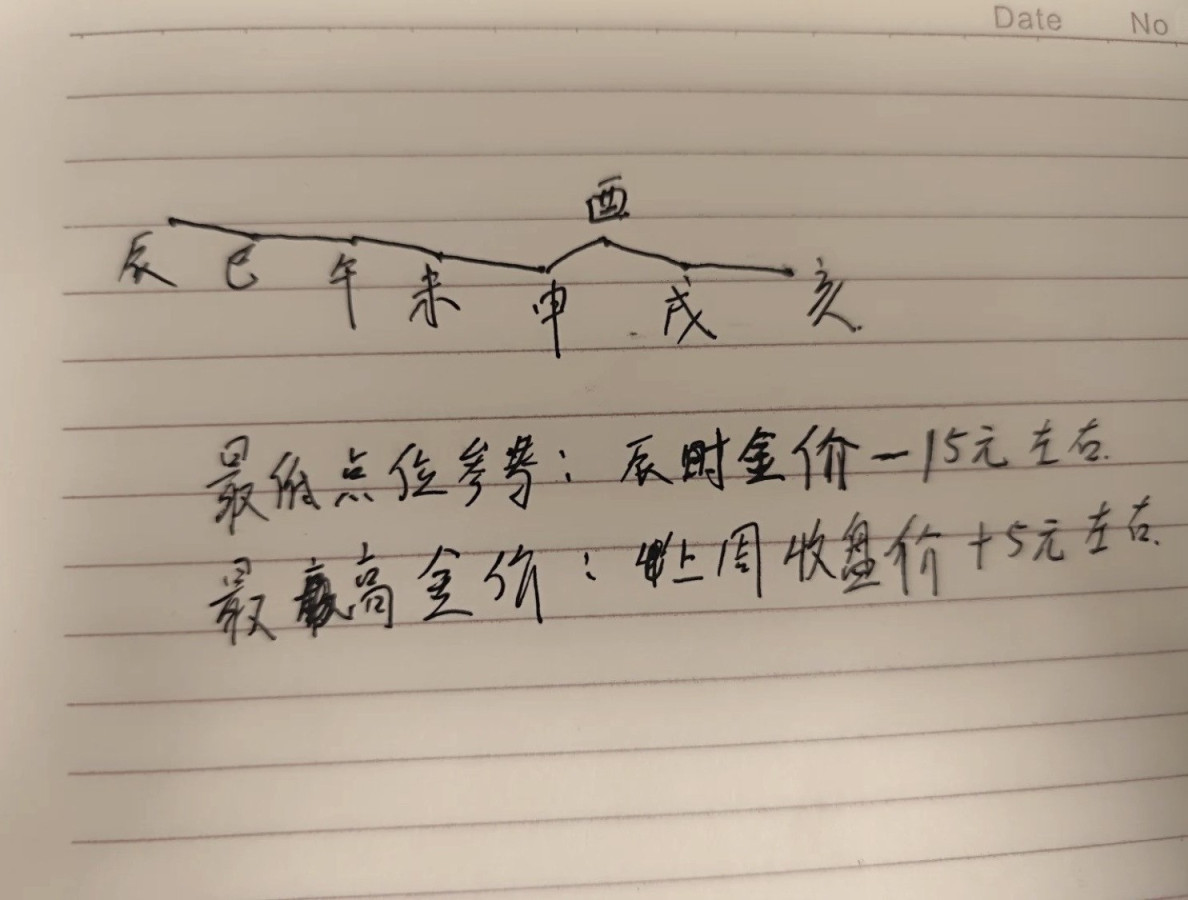 Date No
酉
辰 巳 午 未 申 戌 亥
最低点位参考：辰时金价－15元左右.
最高金价：上周收盘价＋5元左右.